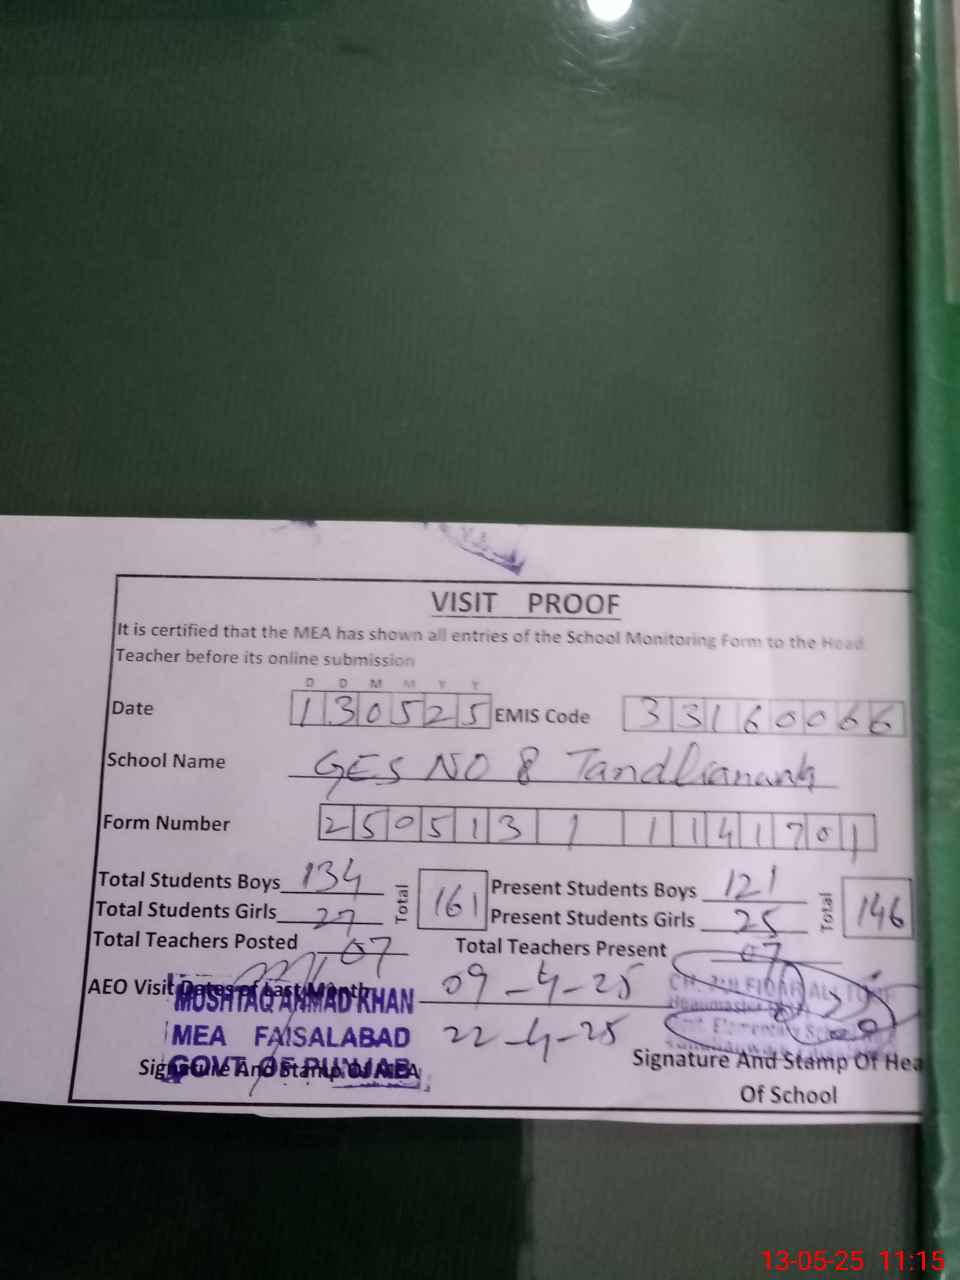 VISIT PROOF
It is certified that the MEA has shown all entries of the School Monitoring Form to the Head
Teacher before its online submission
D D M M Y Y
Date 130525 EMIS Code 33160066
School Name GES NO 8 Tandlianwala
Form Number 2505131 1141701
Total Students Boys 134 Total 161 Present Students Boys 121 Total 146
Total Students Girls 27 Present Students Girls 25
Total Teachers Posted 07 Total Teachers Present 07
AEO Visit Dates of Last Month 09-4-25
22-4-25
MUSHTAQ AHMAD KHAN
MEA FAISALABAD
GOVT OF PUNJAB
Signature And Stamp Of MEA
CH. ZULFIQAR ALI
Headmaster
Govt. Elementary School
Signature And Stamp Of Hea
Of School
13-05-25 11:15